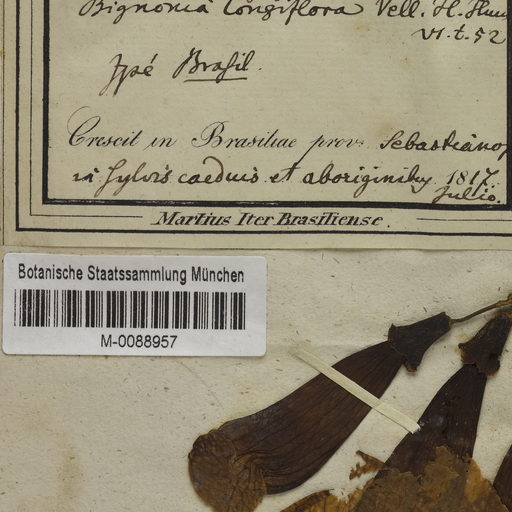 Bignonia longiflora Vell. Fl. Flum
VI. t. 52
Jpé Brasil.
Crescit in Brasiliae prov. Sebastianop
in sylvis caeduis et aboriginibus 1817.
Julio.
Martius Iter Brasiliense.
Botanische Staatssammlung München
M-0088957